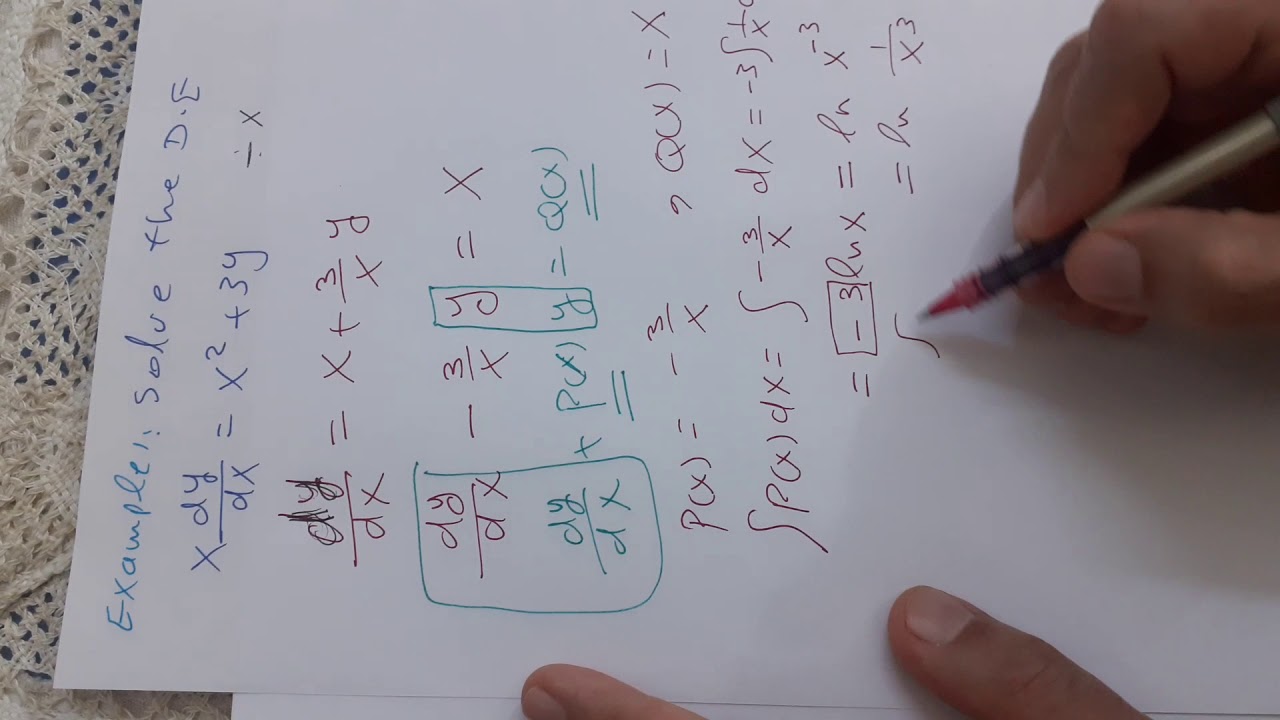 Example 1: Solve the D.E
x dy/dx = x² + 3y ÷ x
dy/dx = x + 3/x y
dy/dx - 3/x y = x
dy/dx + P(x) y = Q(x)
P(x) = - 3/x , Q(x) = x
∫P(x)dx = ∫ - 3/x dx = -3∫ 1/x
= -3 ln x = ln x⁻³
= ln 1/x³
∫